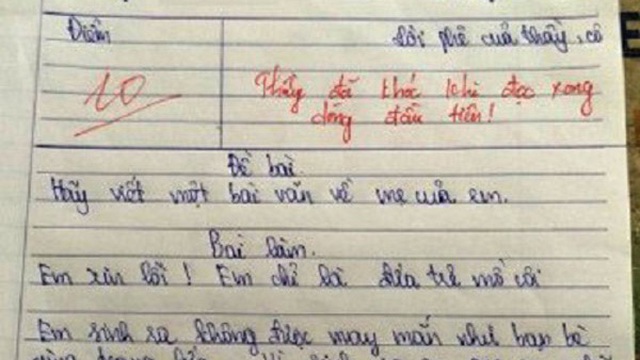 Điểm
Lời phê của thầy, cô
10
Thầy đã khóc khi đọc xong
dòng đầu tiên!
Đề bài
Hãy viết một bài văn về mẹ của em.
Bài làm.
Em xin lỗi! Em chỉ là đứa trẻ mồ côi
Em sinh ra không được may mắn như bạn bè